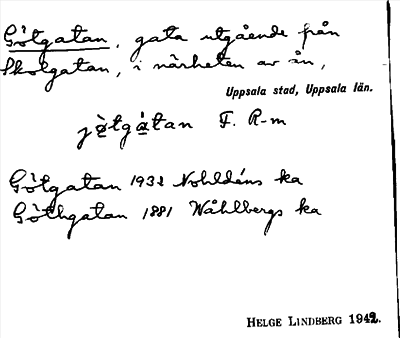 Götgatan, gata utgående från
Skolgatan, i närheten av ån,
Uppsala stad, Uppsala län.
jø̀tgátan F. R-m
Götgatan 1932 Nohldéns ka
Göthgatan 1881 Wåhlbergs ka
HELGE LINDBERG 1942.